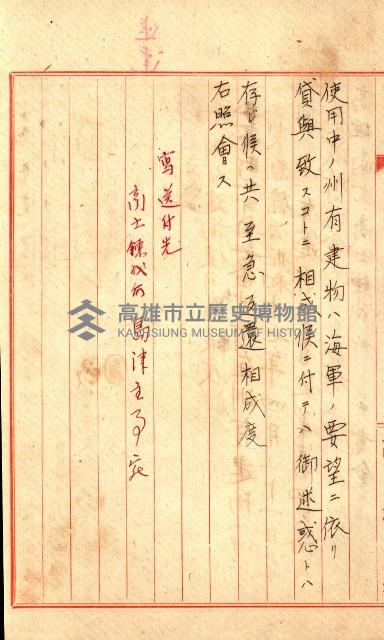 使用中ノ州有建物ハ海軍ノ要望ニ依リ
貸與致スコトニ相成候ニ付テハ御迷惑トハ
存じ候ヘ共至急返還相成度
右照會ス
寫送付先
高士錬成所島津主事宛
高雄市立歷史博物館
KAOHSIUNG MUSEUM OF HISTORY